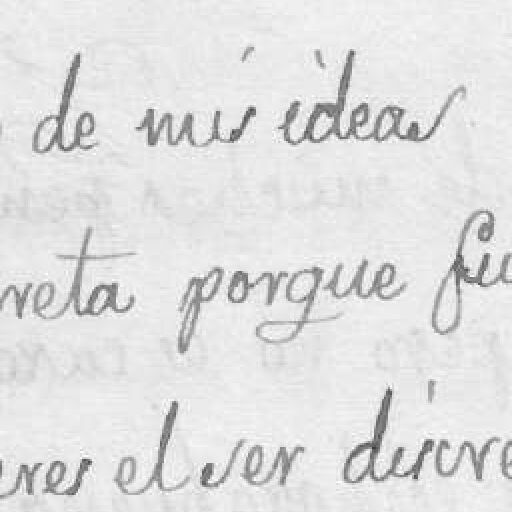 de mis ideas
reta porque fu
eres el ser discre